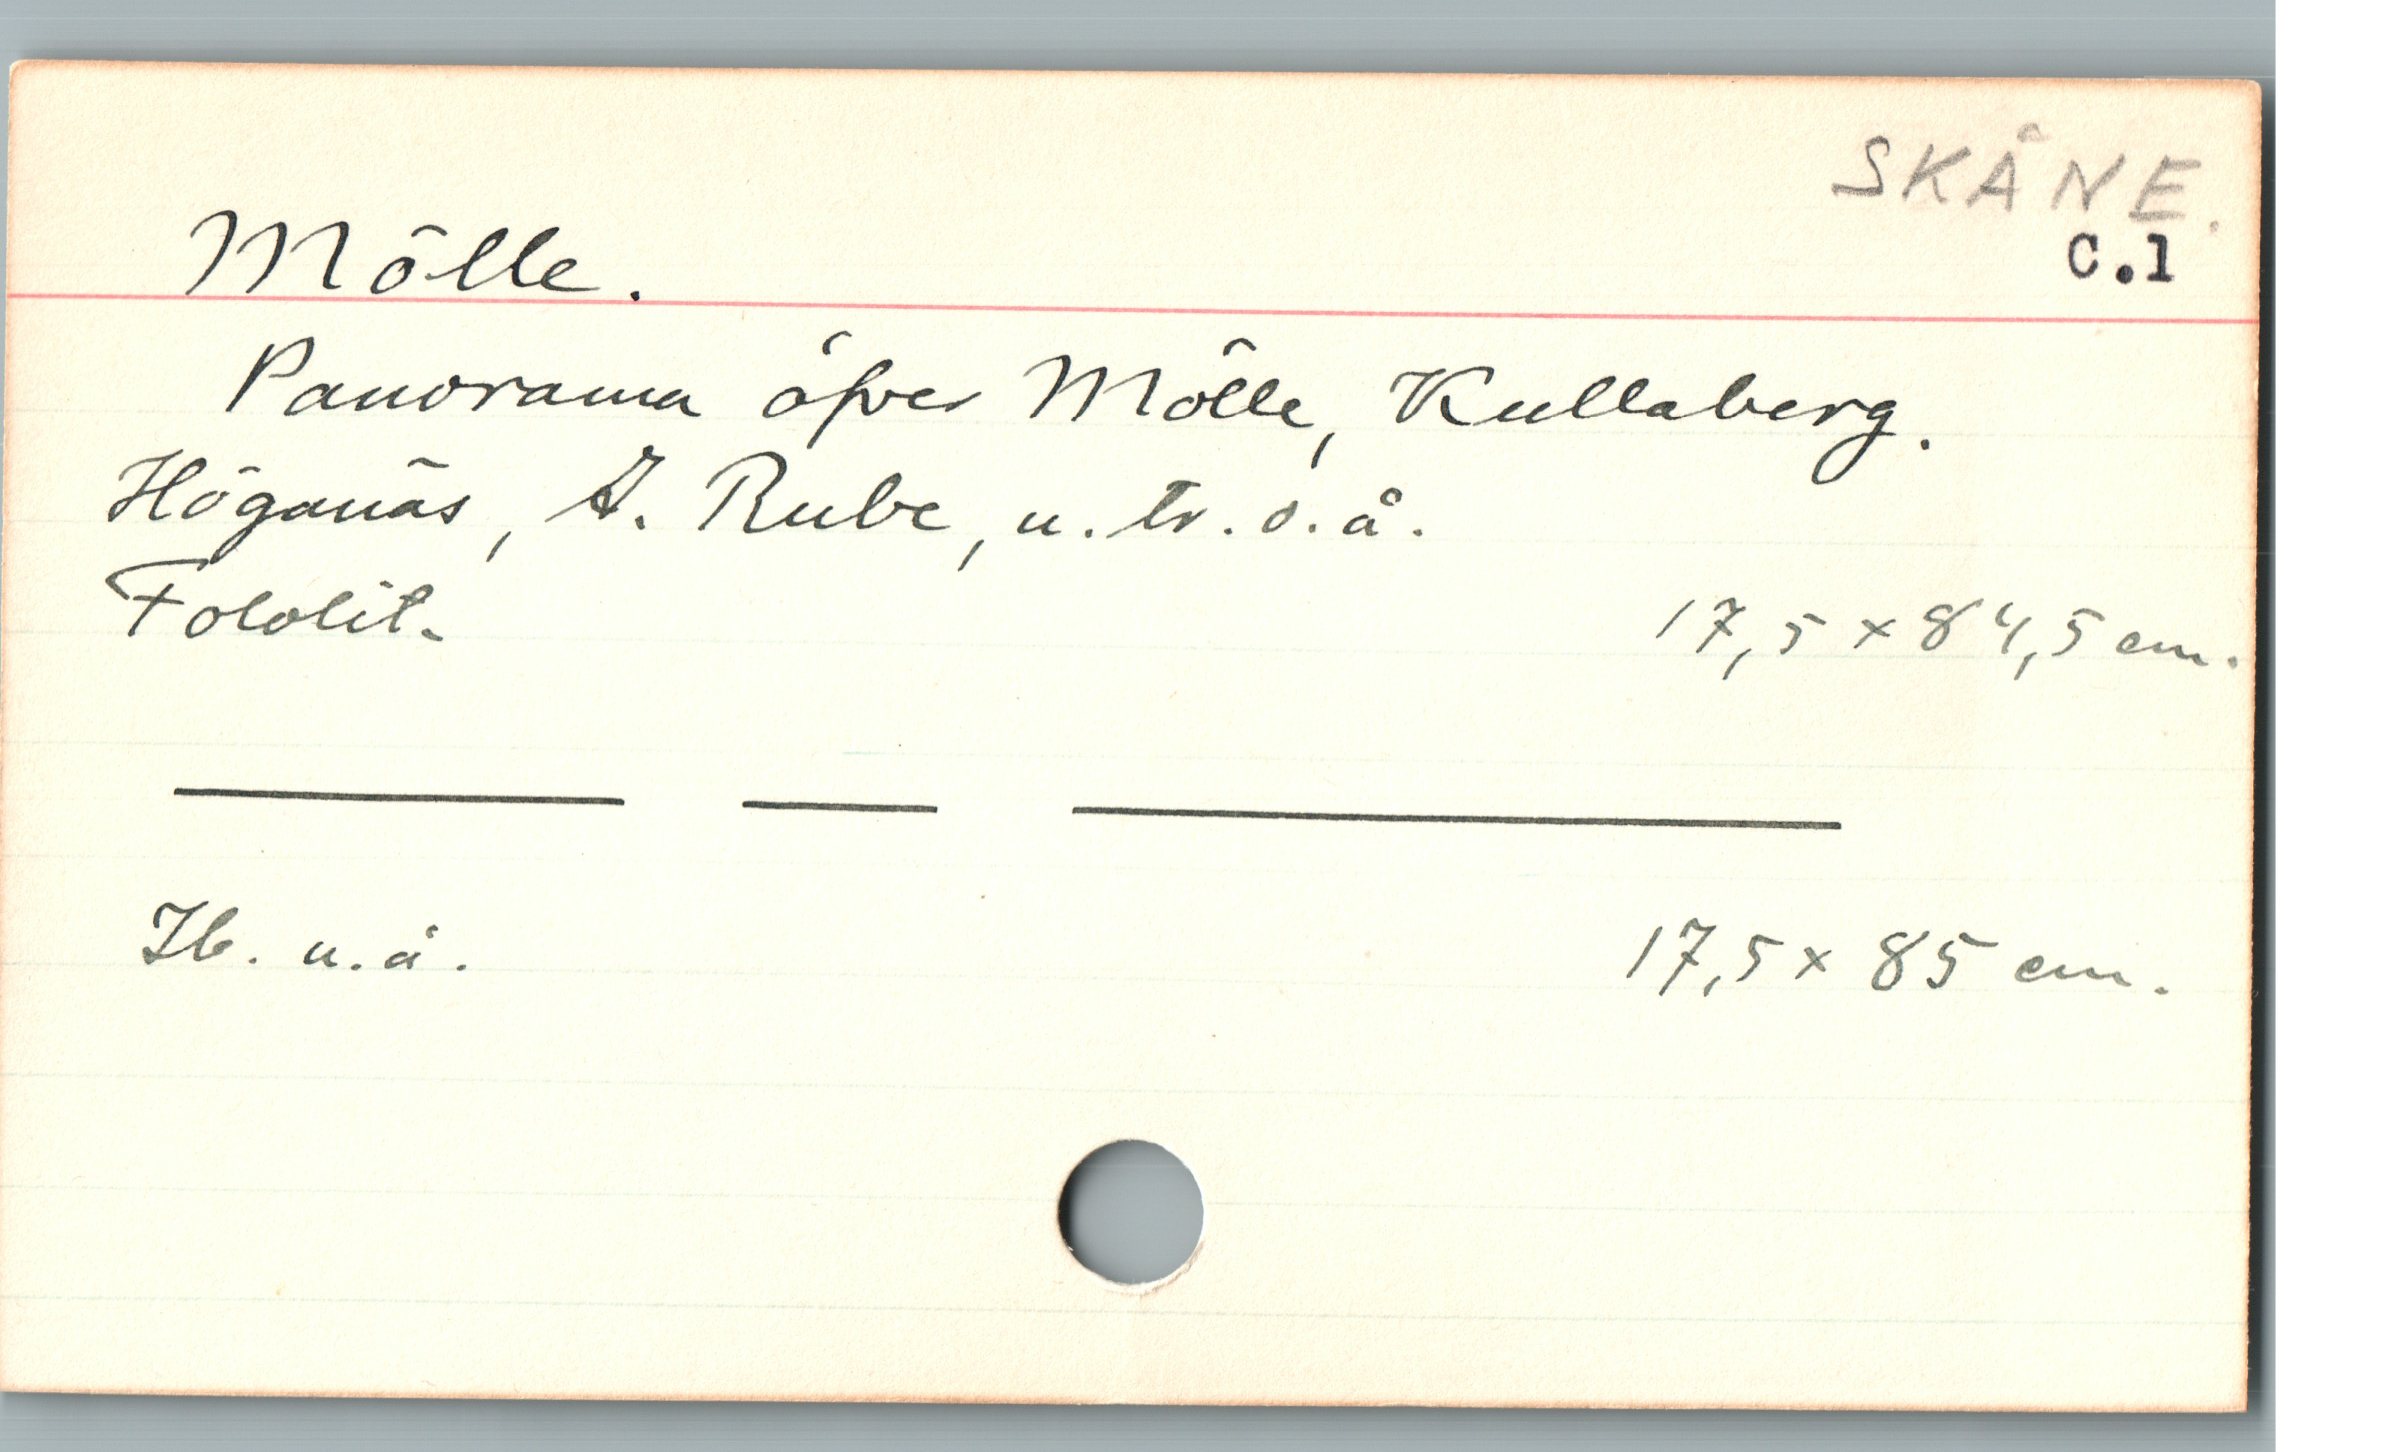 SKÅNE.
C.1
Mölle.
Panorama öfver Mölle, Kullaberg.
Höganäs, A. Rube, u. tr. o. å.
Fotolit. 17,5 x 84,5 cm.
Ib. u. å. 17,5 x 85 cm.